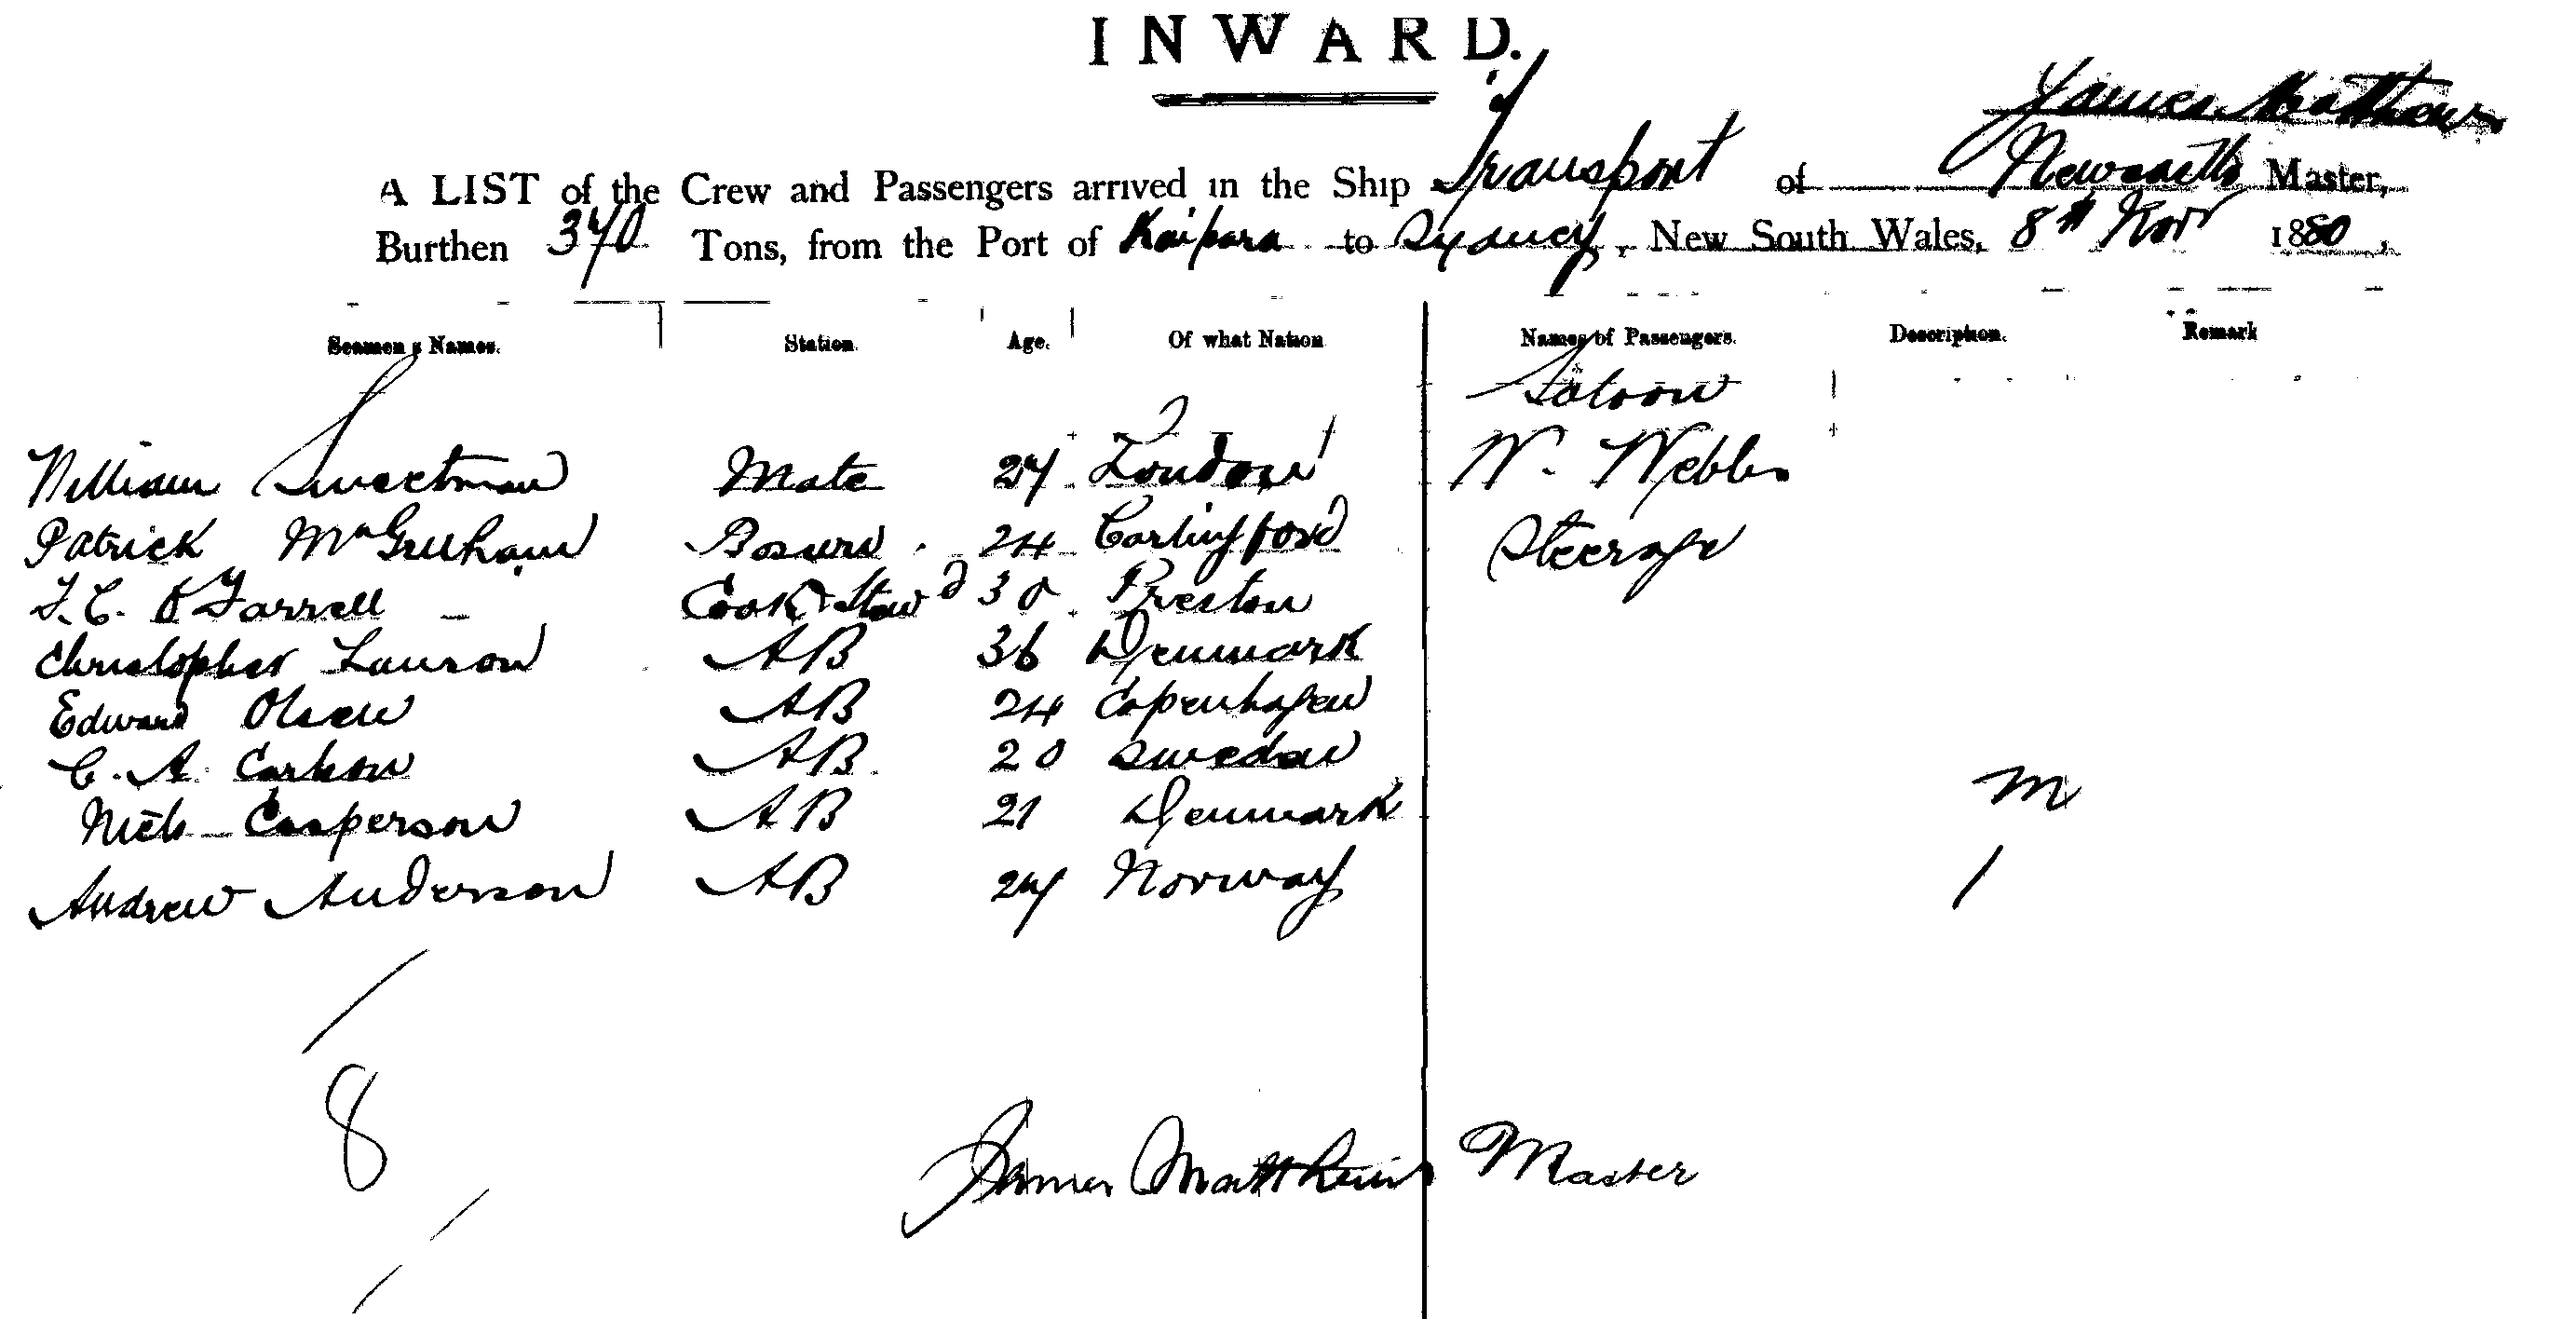 INWARD.
James Matthews
A LIST of the Crew and Passengers arrived in the Ship Transport of Newcastle Master,
Burthen 370 Tons, from the Port of Kaipara to Sydney, New South Wales, 8th Novr 1880,
Seamen's Names. Station. Age. Of what Nation Names of Passengers. Description. Remark
Saloon
William Sweetman Mate 27 London W. Webb
Patrick Bosun 24 Carlingford Steerage
T. C. O'Farrell Cook & Stewd 30 Preston
Christopher Lauson AB 36 Denmark
Edward Olsen AB 24 Copenhagen
C. A. Carlson AB. 20 Sweden
Niels Casperson AB 21 Denmark M
Andrew Anderson AB 27 Norway 1
8
James Matthews Master